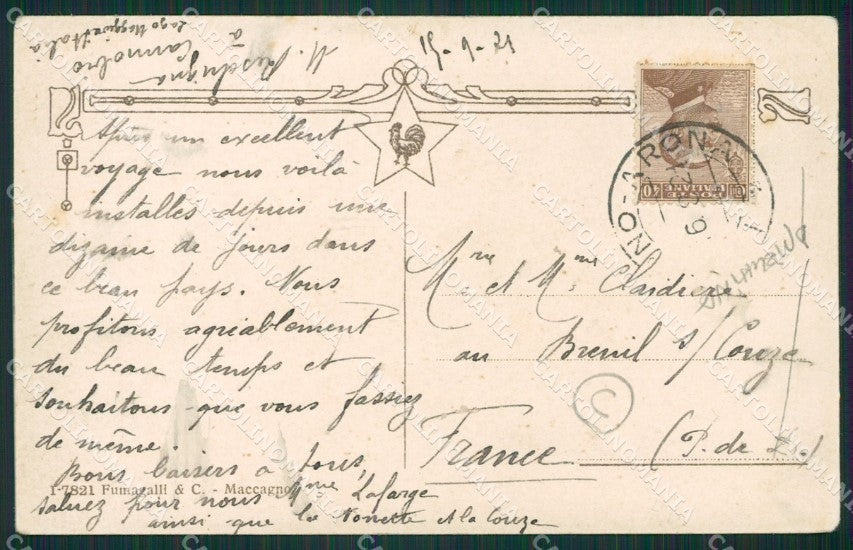 15-9-21
à
Cannobio
Lago Maggiore Italia
Après un excellent
voyage nous voilà
installés depuis une
dizaine de jours dans
ce beau pays. Nous
profitons agréablement
du beau temps et
souhaitons que vous fassiez
de même.
Bons baisers à tous,
saluez pour nous Mme Lafarge
ainsi que la Nonette et la Couze
1-7821 Fumagalli & C. - Maccagno
POSTE ITALIANE
40
NO-ARONA
Mr et Mme Claidière
au Breuil s/Couze
(P. de D.)
France
C
CARTOLINOMANIA